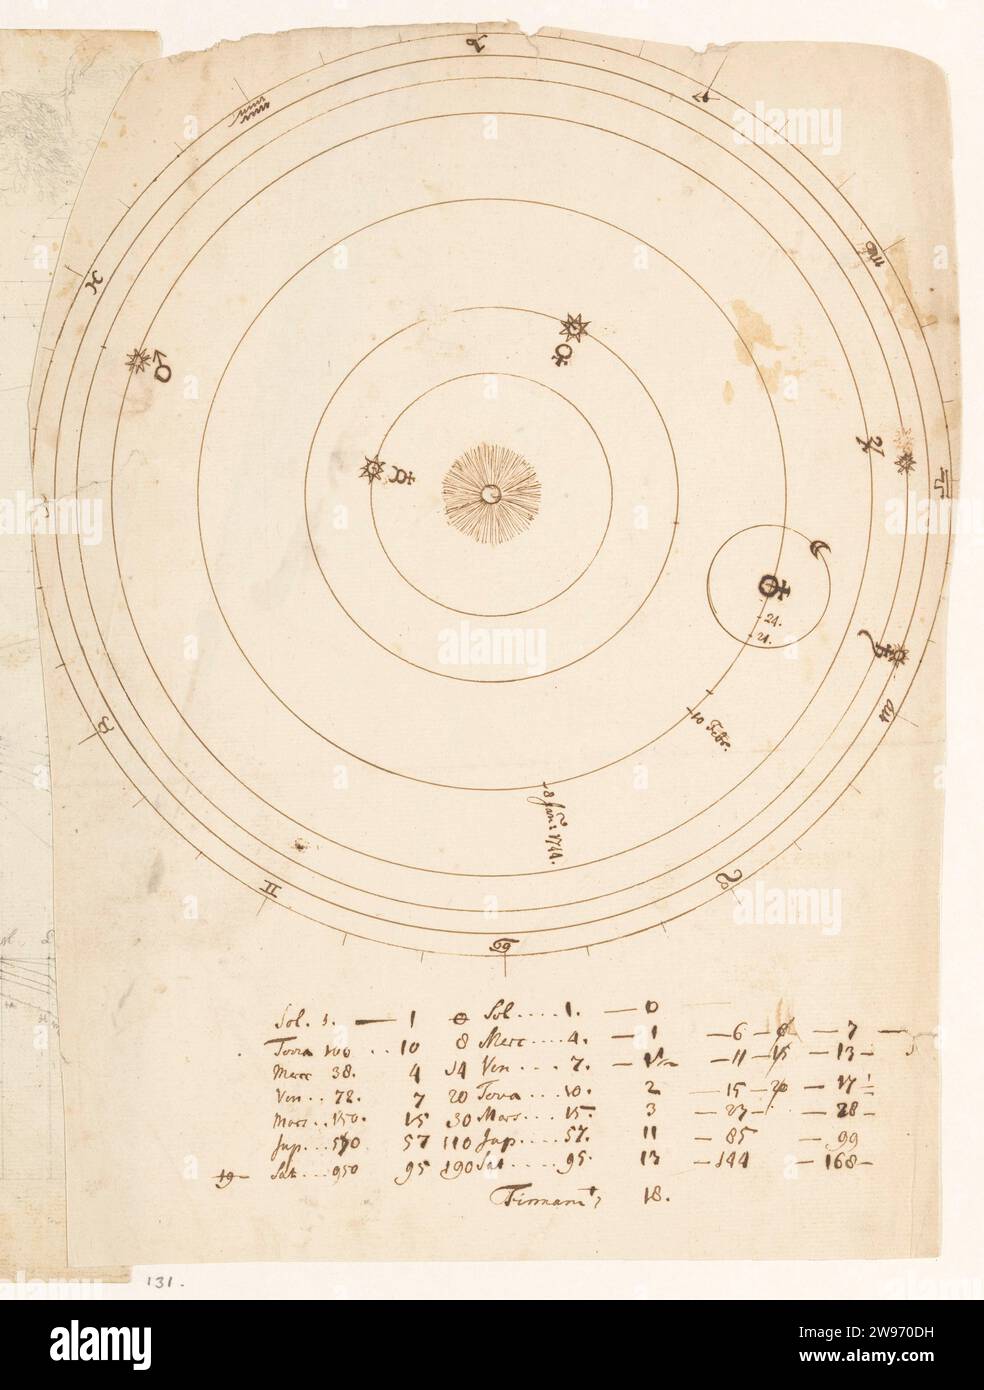 ♑
♐
♒
♏
♓
♀
♂
♃
☿
♎
☾
♁
24.
24.
♄
♌
10 Febr.
8 Jan: 1744.
♊
♋
Sol. 1. — 1 0 Sol .... 1. — 0
Terra 100 .. 10 8 Merc .... 4. — 1 — 6 — — 7 —
Merc 38. 4 14 Ven ... 7. — — 11 — 15 — 13 —
Ven .. 72. 7 20 Terra ... 10. 2 — 15 — 20 — 17 ½
Mars .. 150. 15 30 Mars .... 15. 3 — 23 — — 28 —
Jup. ... 570 57 110 Jup .... 57. 11 — 85 — 99
19 — Sat ... 950 95 190 Sat .... 95. 13 — 144 — 168 —
Firmamt 18.
131.
alamy
Image ID: 2W970DH
www.alamy.com